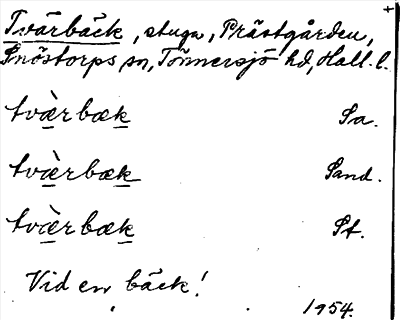 Tvärbäck, stuga, Prästgården,
Snöstorps sn, Tönnersjö hd, Hall. l.
tvæ̀rbæk Sa.
tvæ̀rbæk Sand.
tvæ̀rbæk St.
Vid en bäck!
1954.